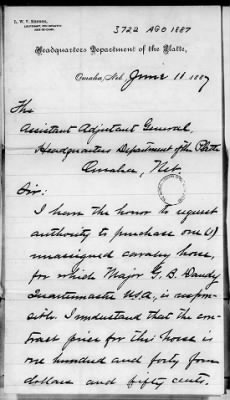 3722 AGO 1887
Headquarters Department of the Platte,
Omaha, Neb. June 11 1887
The
Assistant Adjutant General,
Headquarters Department of the Platte
Omaha, Neb.
Sir:
I have the honor to request
authority to purchase one (1)
unassigned cavalry horse,
for which Major G. B. Dandy
Quartermaster U.S.A., is respon-
sible. I understand that the con-
tract price for this horse is
one hundred and forty four
dollars and fifty cents.